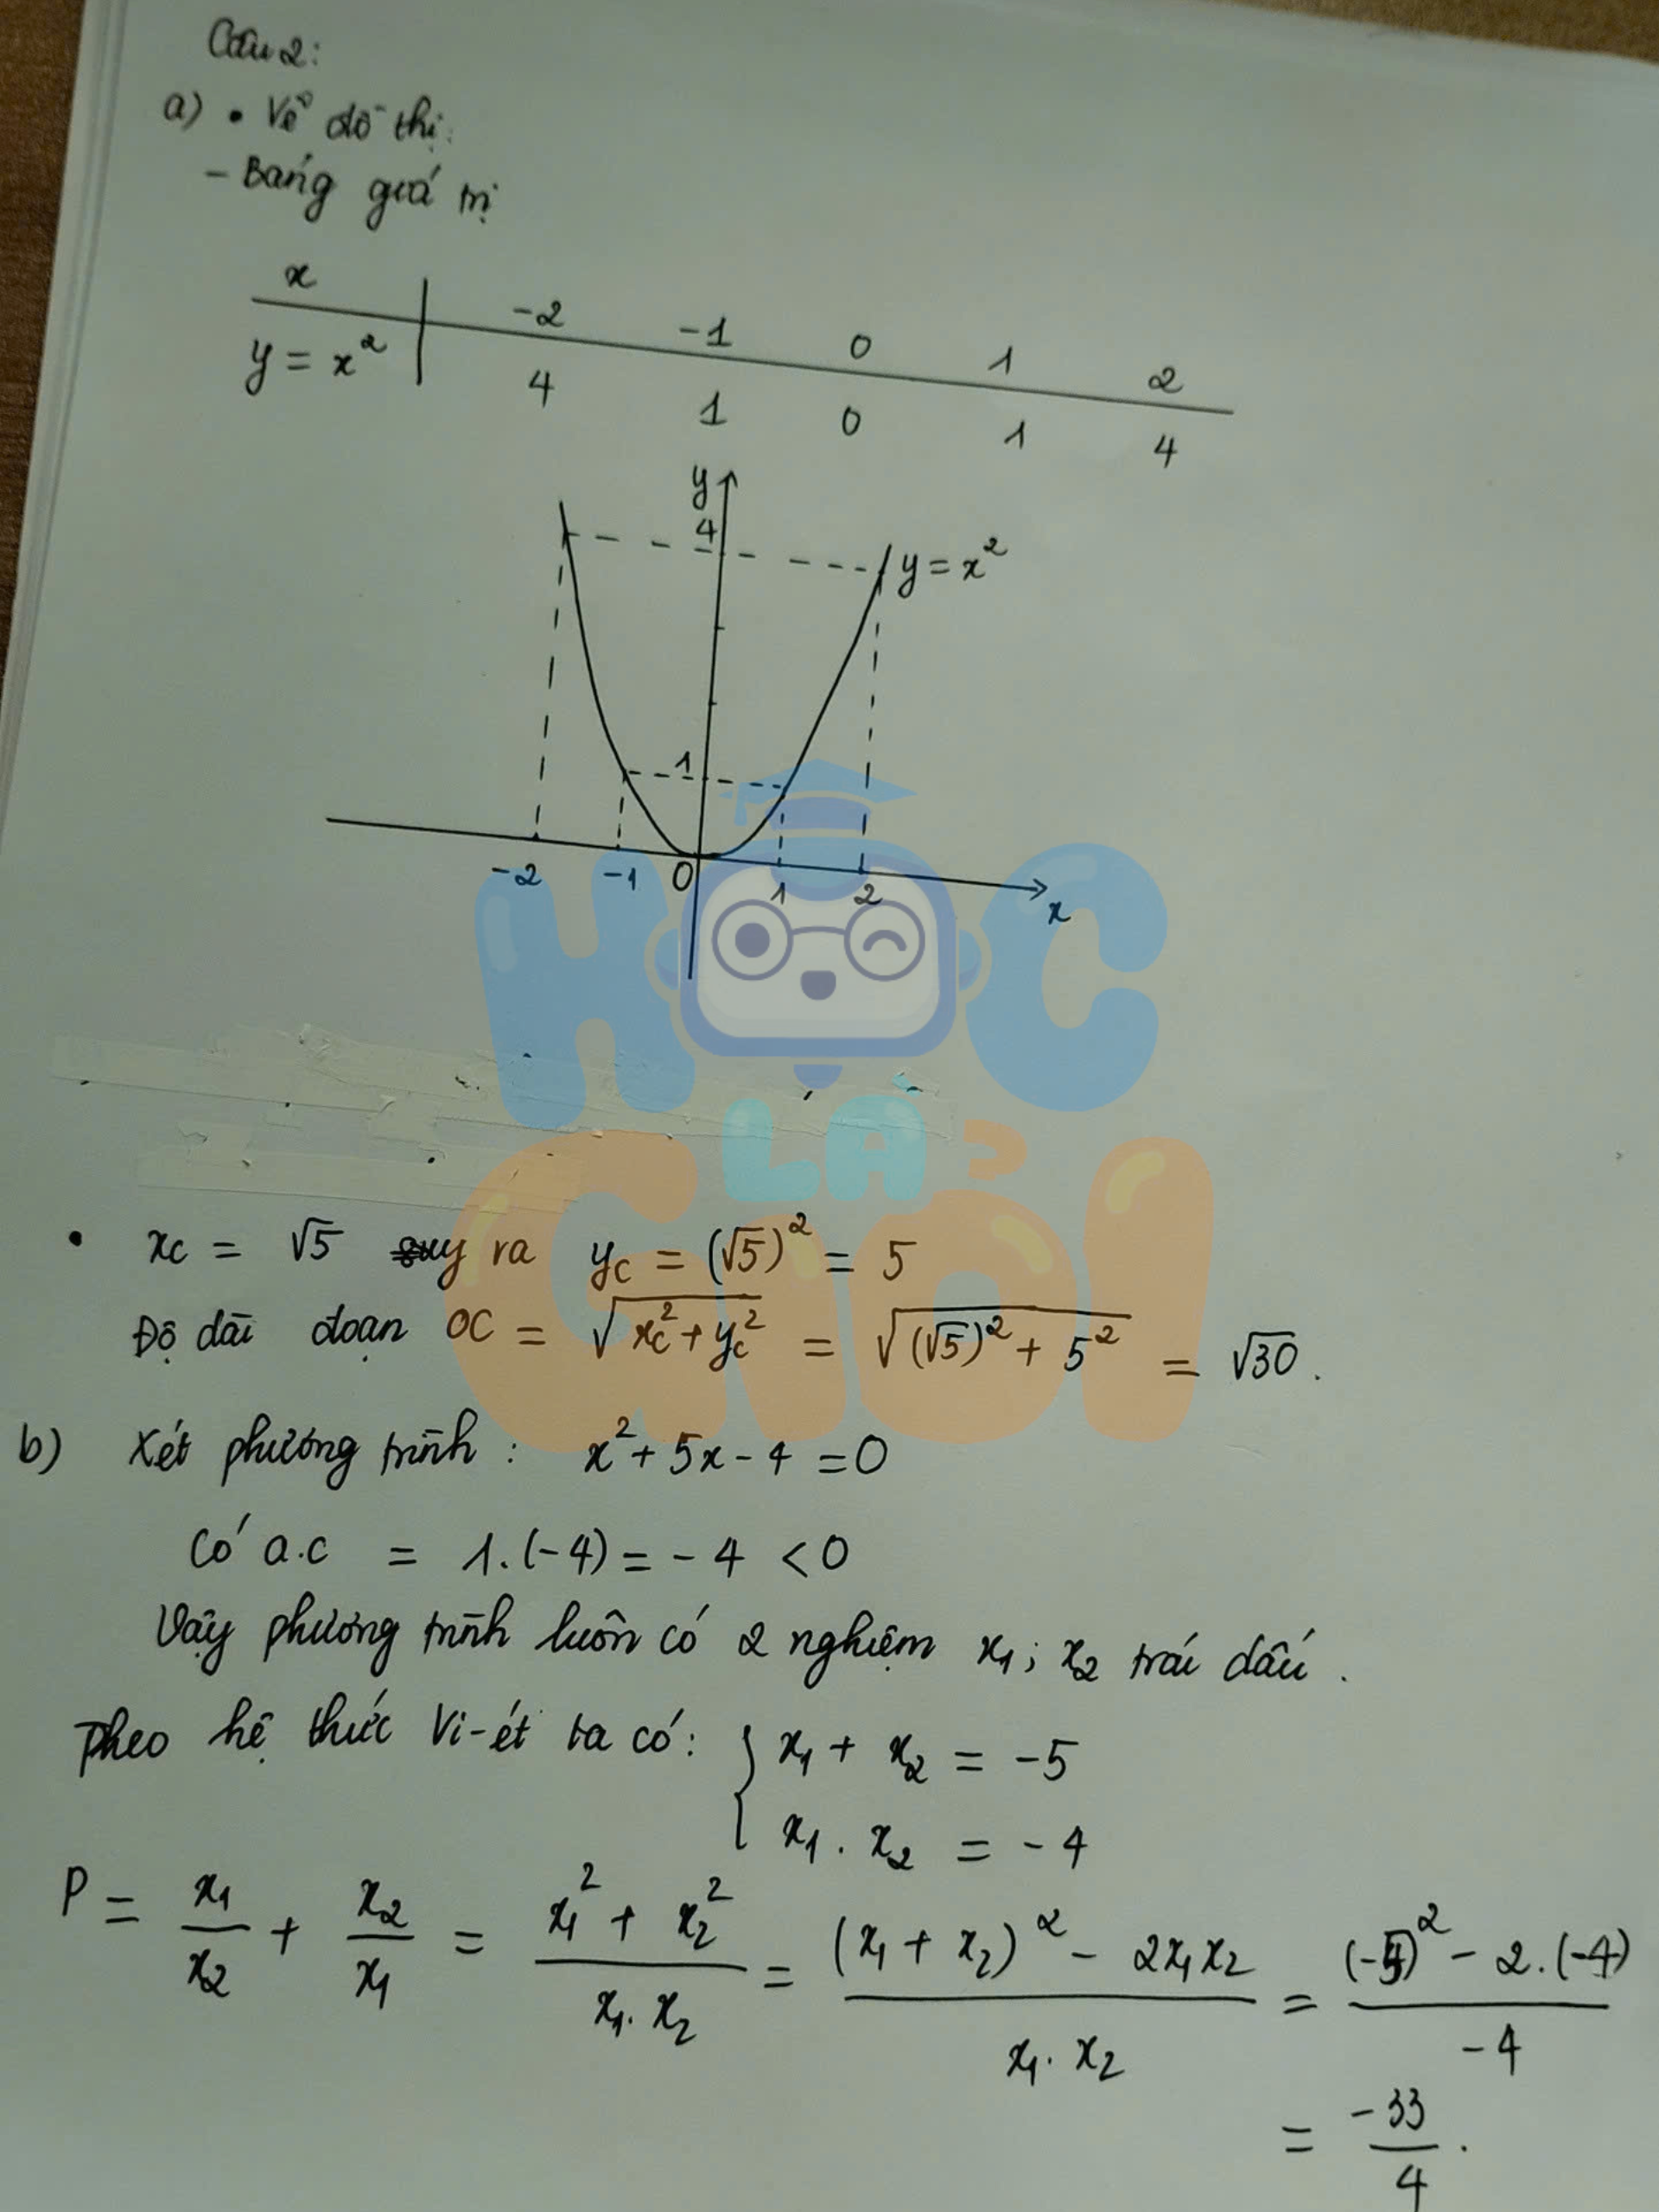 Câu 2:
a) • Vẽ đồ thị:
- Bảng giá trị
x -2 -1 0 1 2
y = x² 4 1 0 1 4
y
4
y = x²
1
-2 -1 0 1 2
x
HỌC
LÀ
GIỎI
• xC = √5 suy ra yC = (√5)² = 5
Độ dài đoạn OC = √(xC² + yC²) = √((√5)² + 5²) = √30.
b) Xét phương trình : x² + 5x - 4 = 0
Có a.c = 1.(-4) = -4 < 0
Vậy phương trình luôn có 2 nghiệm x₁; x₂ trái dấu.
Theo hệ thức Vi-ét ta có: { x₁ + x₂ = -5
x₁ . x₂ = -4
P = x₁/x₂ + x₂/x₁ = (x₁² + x₂²)/(x₁. x₂) = ((x₁ + x₂)² - 2x₁x₂)/(x₁. x₂) = ((-5)² - 2.(-4))/(-4)
= -33/4.